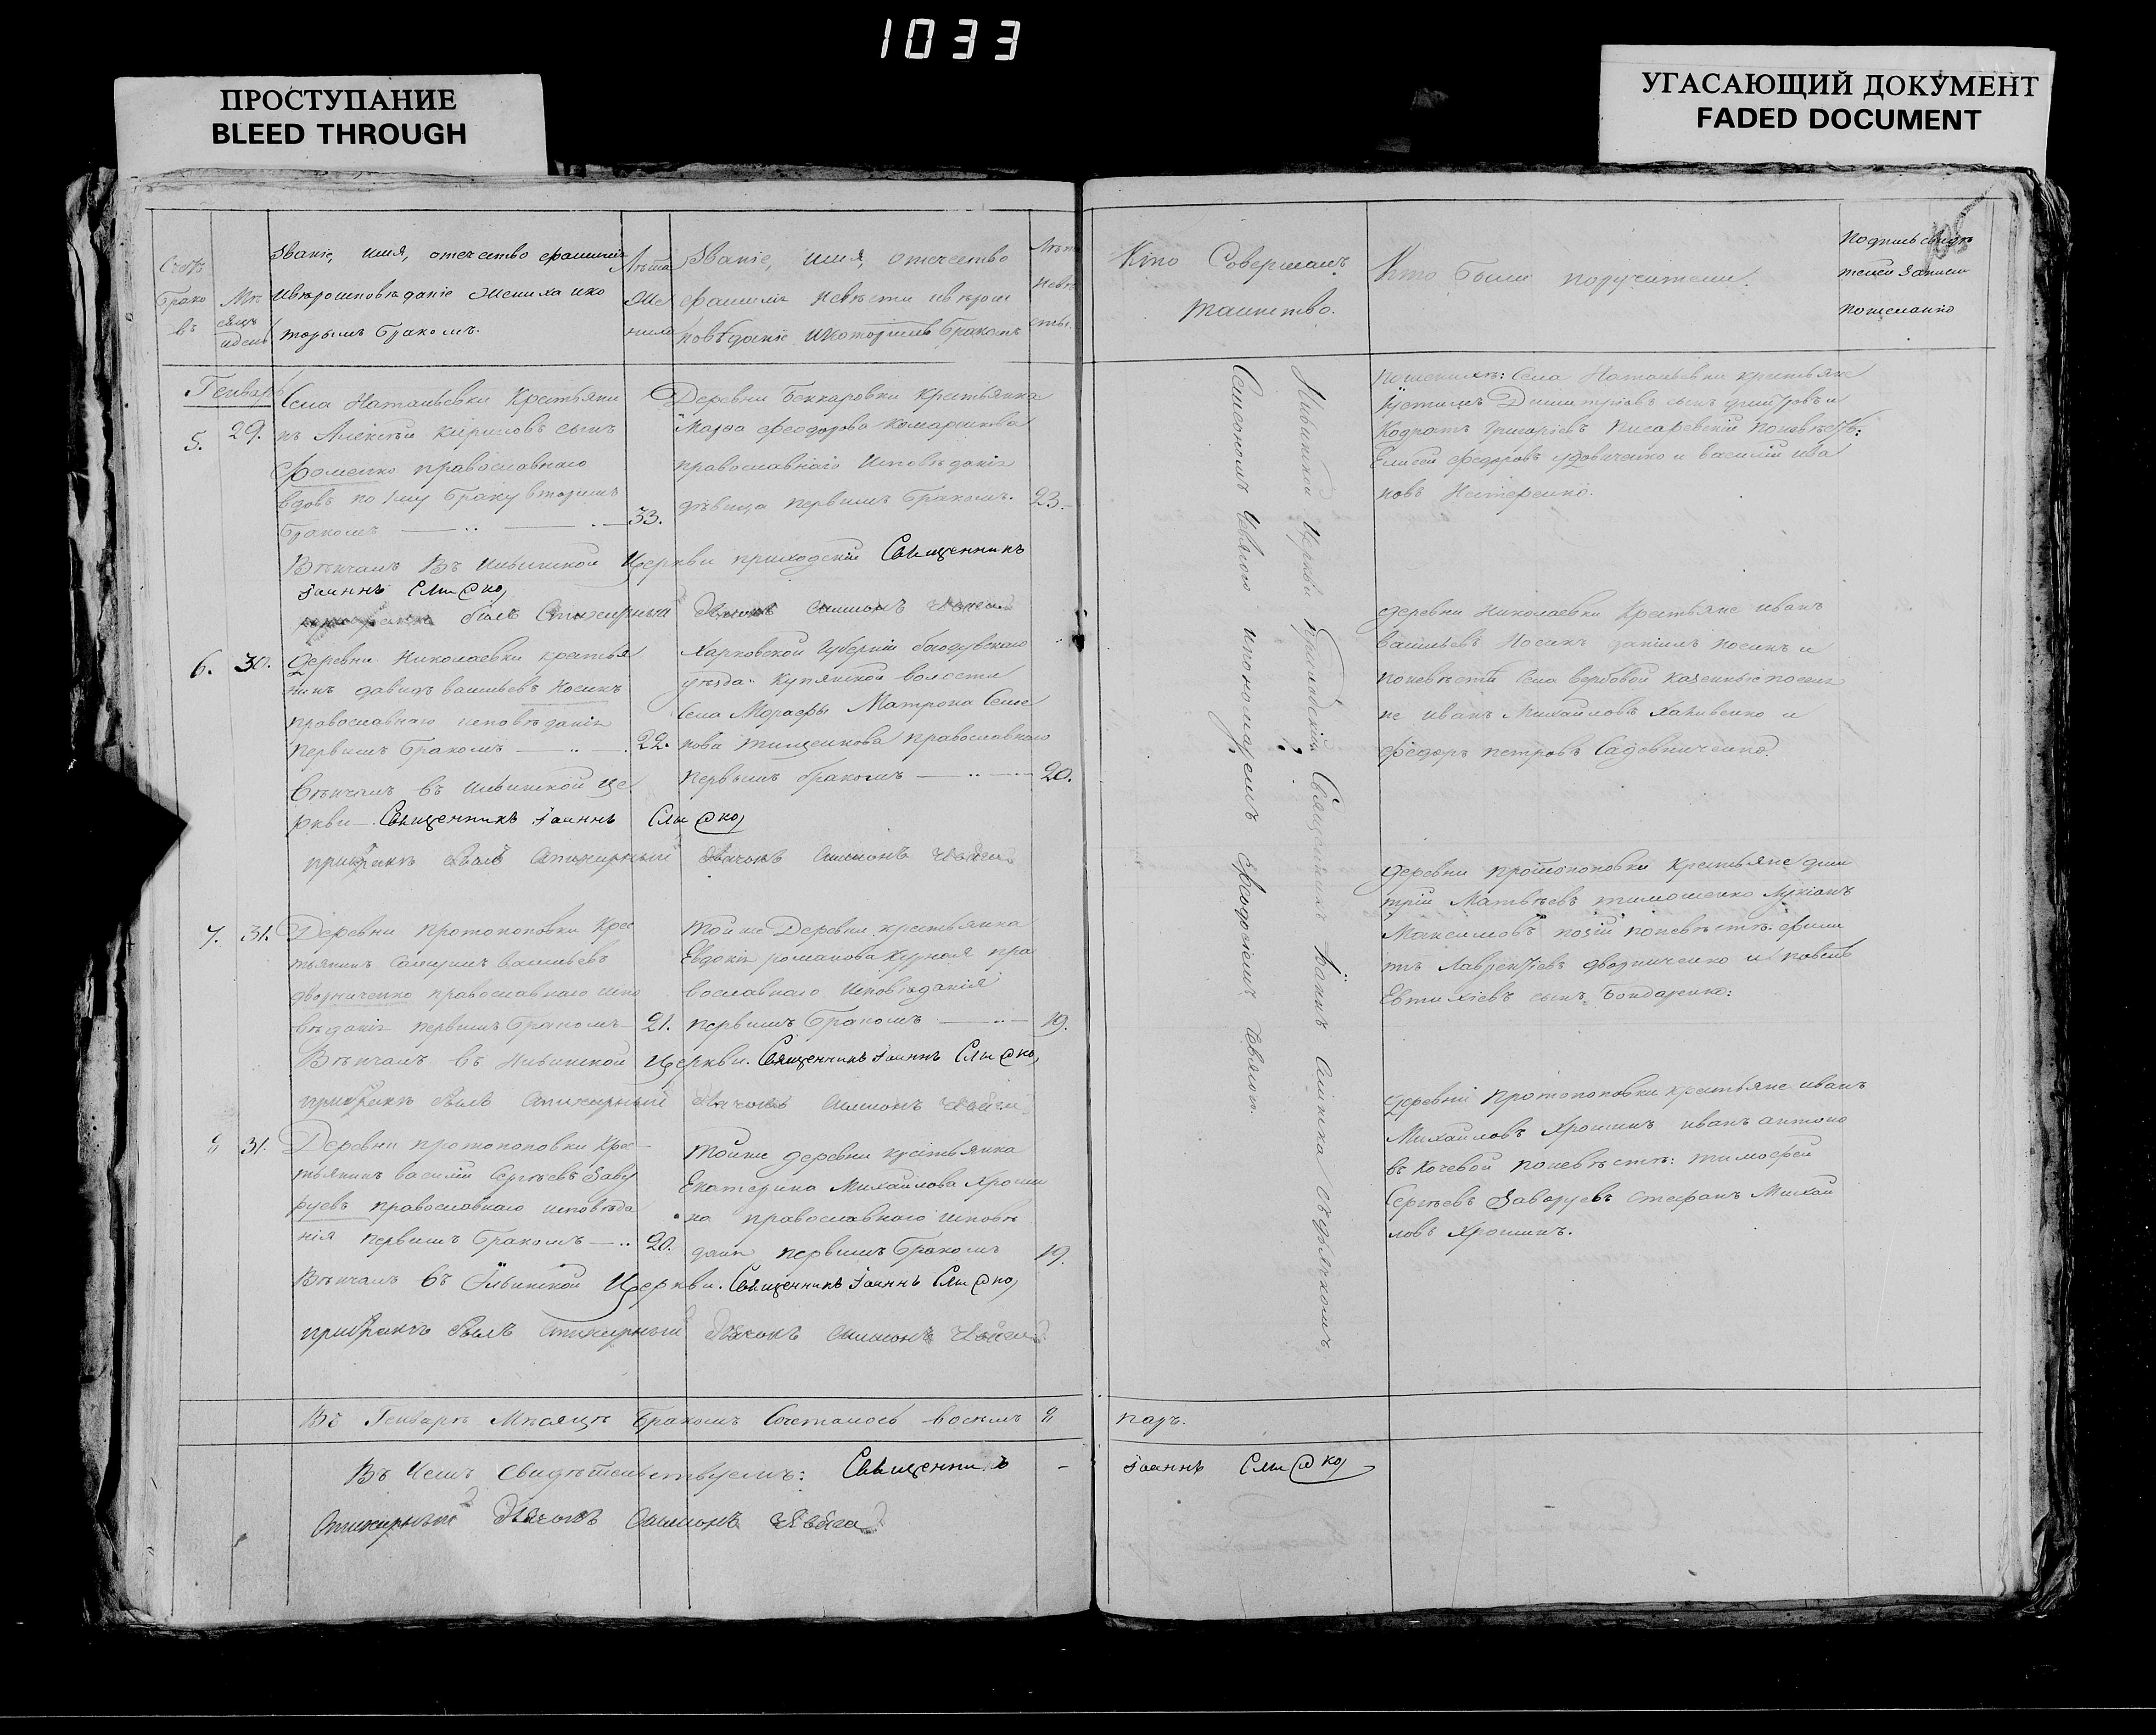 1033
ПРОСТУПАНИЕ
BLEED THROUGH
УГАСАЮЩИЙ ДОКУМЕНТ
FADED DOCUMENT
Счетъ
Брако
въ
Мѣ
сяцъ
идень
Званіе, имя, отечество фамилія
ивѣроисповѣданіе Жениха ико
торымъ бракомъ.
Лѣта
Же
ниха
Званіе, имя, отечество
фамилія невѣсты ивѣрои
повѣданіе икоторымъ бракомъ
Лѣта
Невѣ
сты.
Кто Совершалъ
таинство.
Кто были поручители.
Подпись свидѣ
телей записи
пожеланію
Генварь
5.
29.
Села Натальевки Крестьяни
нъ Алексѣй Кириловъ сынъ
Фоменко православнаго
вдовъ по 1му браку вторымъ
бракомъ
33.
Деревни Боккаровки Крестьянка
Марѳа Феодорова Комарникова
православнаго Исповѣданія
дѣвица первымъ бракомъ.
23.
Вѣнчалъ Въ Ильинской Церкви приходскій Священникъ
Іоаннъ
былъ Стихирный Дьячокъ Симионъ
6.
30.
Деревни Николаевки крестья
нинъ давидъ васильевъ Носикъ
православнаго исповѣданія
первымъ бракомъ
22.
Харковской Губерніи богодуховскаго
уѣзда Купянской волости
Села Мораефы Матрона Семе
нова тищенкова православнаго
первымъ бракомъ
20.
Вѣнчалъ въ Ильинской це
ркви Священникъ Іоаннъ
былъ Стихирный Дьячокъ Симионъ
7.
31.
Деревни Протопоповки Крес
тьянинъ васильевъ
дворниченко православнаго испо
вѣданія первымъ бракомъ
21.
тойже Деревни крестьянка
Евдокія романова Курная пра
вославнаго Исповѣданія
первымъ бракомъ
19.
Вѣнчалъ въ Ильинской Церкви. Священникъ Іоаннъ
былъ Стихирный Дьячокъ Симионъ
8
31.
Деревни протопоповки Крес-
тьянинъ василій Сергѣевъ Заве
руевъ православнаго исповѣда
нія первымъ бракомъ
20.
тойже деревни крестьянка
Екатерина Михайлова Хроми
на православнаго исповѣ
данія первымъ бракомъ
19.
Вѣнчалъ въ Ильинской Церкви. Священникъ Іоаннъ
былъ Стихирный Дьячокъ Симионъ
Въ Генварѣ Мѣсяцѣ бракомъ Сочеталось восемь 8 паръ.
Въ чемъ свидѣтельствуемъ: Священникъ Іоаннъ
Стихирный Дьячокъ Симионъ
Церкви Приходскій Священникъ Іоаннъ
Симеономъ ипономаремъ
Пожениху: Села Натальевки крестьяне
Дмитріевъ сынъ
Кодратъ Григоріевъ Писаревскій поневѣстѣ:
Елисей Федоровъ удовиченко и василій ива
новъ Нестеренко.
деревни Николаевки Крестьяне иванъ
васильевъ Носикъ даніилъ носикъ и
поневѣстѣ Села вербовой казенные поселя
не иванъ Михайловъ и
федоръ петровъ Садовниченко
деревни протопоповки крестьяне дми
трій Матвѣевъ тимошенко Лукіанъ
Максимовъ поневѣстѣ: фили
пъ Лаврентіевъ дворниченко и павелъ
Евтихіевъ сынъ Бондаренко:
деревни протопоповки крестьяне иванъ
Михайловъ Хроминъ иванъ антоно
въ Кочевой поневѣстѣ: тимофей
Сергѣевъ Заверуевъ стефанъ Михай
ловъ Хроминъ.